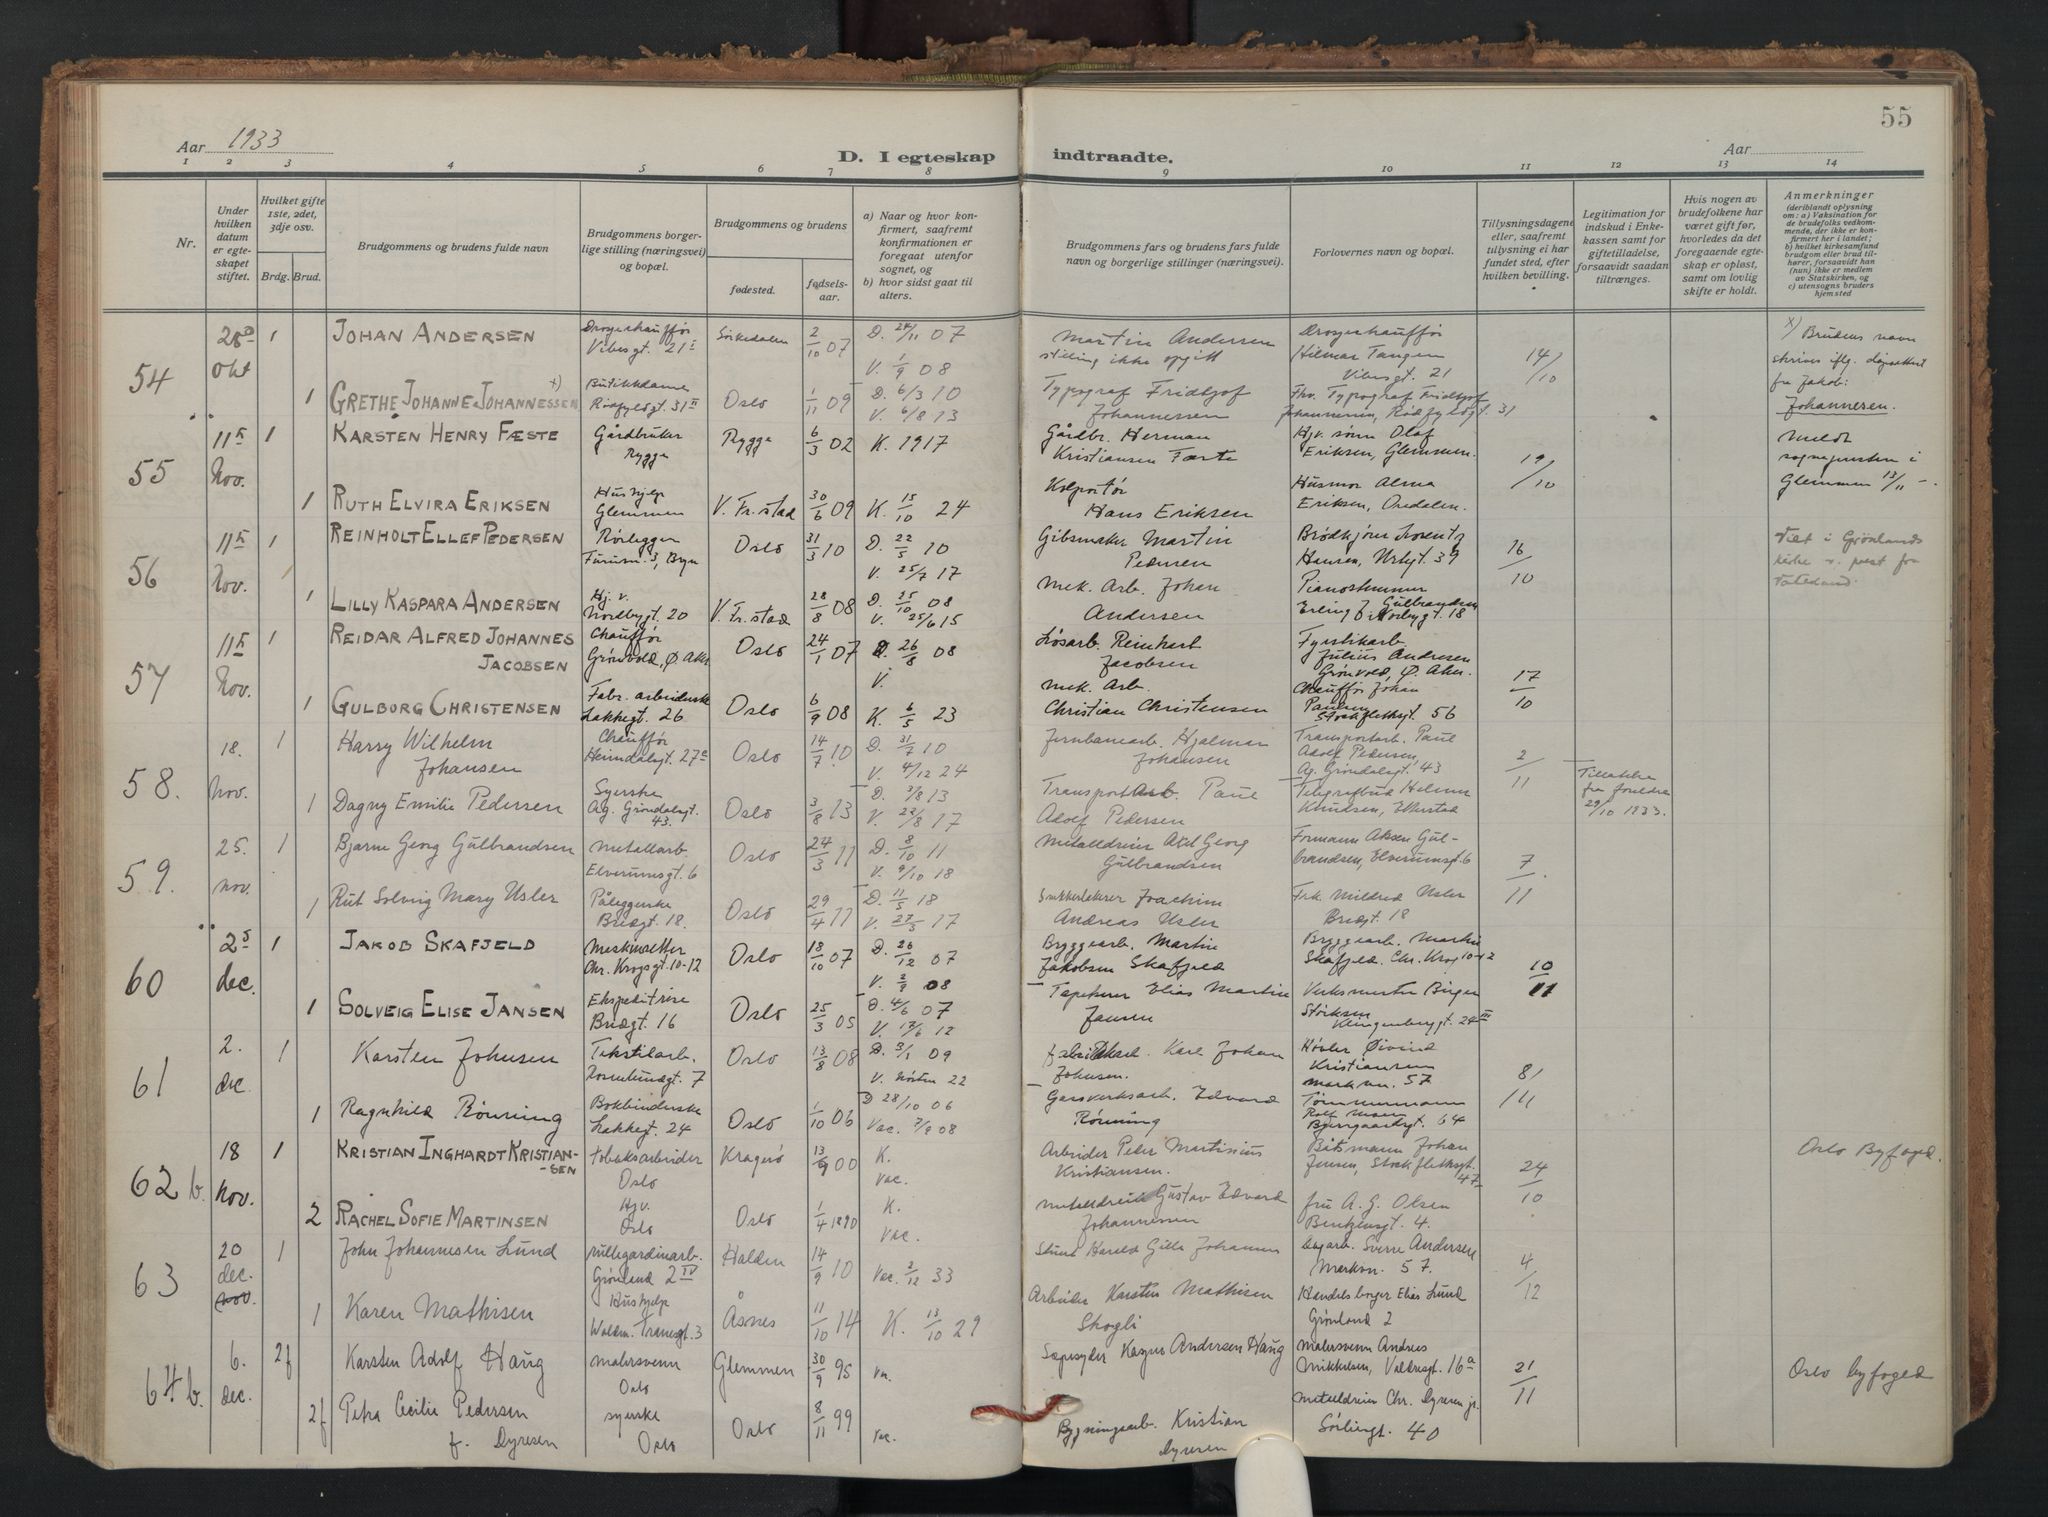 55
Aar 1933
D. I egteskap indtraadte.
Aar
1 2 3 4 5 6 7 8 9 10 11 12 13 14
Nr.
Under hvilken datum er egteskapet stiftet.
Hvilket gifte 1ste, 2det, 3dje osv.
Brdg. Brud.
Brudgommens og brudens fulde navn
Brudgommens borgerlige stilling (næringsvei) og bopæl.
Brudgommens og brudens
fødested.
fødselsaar.
a) Naar og hvor konfirmert, saafremt konfirmationen er foregaat utenfor sognet, og
b) hvor sidst gaat til alters.
Brudgommens fars og brudens fars fulde navn og borgerlige stillinger (næringsvei).
Forlovernes navn og bopæl.
Tillysningsdagene eller, saafremt tillysning ei har fundet sted, efter hvilken bevilling.
Legitimation for indskud i Enkekassen samt for giftetilladelse, forsaavidt saadan tiltrænges.
Hvis nogen av brudefolkene har været gift før, hvorledes da det foregaaende egteskap er opløst, samt om lovlig skifte er holdt.
Anmerkninger
(deriblandt oplysning om: a) Vaksination for de brudefolks vedkommende, der ikke er konfirmert her i landet; b) hvilket kirkesamfund brudgom eller brud tilhører, forsaavidt han (hun) ikke er medlem av Statskirken, og c) utensogns bruders hjemsted
54
28 okt
1 JOHAN ANDERSEN
Drosjechauffør
Vibesgt. 21
Sørkedalen 2/10 07
D. 24/11 07
V. 1/9 08
Martin Andersen
stilling ikke opgitt
Drosjechauffør
Hilmar Tangen
Vibesgt. 21
14/10
x) Brudens navn
Johannesen.
1 GRETHE JOHANNE JOHANNESSEN x)
Butikkdame
Rødfyldgt. 31 II
Oslo 1/11 09
D. 6/3 10
V. 6/8 13
Typograf Fridtjof
Johannessen
Fhv. Typograf Fridtjof
Johannessen, Rødfyldgt. 31
55
11 Nov.
1 KARSTEN HENRY FÆSTE
Gårdbruker
Rygge
Rygge 6/3 02
K. 1917
Gårdbr. Herman
Kristiansen Fæste
Olaf
Eriksen, Glemmen.
19/10
Meldt
sognepresten i
Glemmen 13/11
1 RUTH ELVIRA ERIKSEN
Hushjelp
Glemmen
V. Fr.stad 30/6 09
K. 15/10 24
Kolportør
Hans Eriksen
Husmor Alma
Eriksen,
56
11 Nov.
1 REINHOLT ELLEF PEDERSEN
Rørlegger
3, Bryn
Oslo 31/3 10
D. 22/5 10
V. 25/7 17
Gibsmaker Martin
Pedersen
Hansen, Urtegt. 39
16/10
Viet i Grønlands
kirke
1 LILLY KASPARA ANDERSEN
Hj. v.
Nordbygt. 20
V. Fr.stad 28/8 08
D. 25/10 08
V. 25/6 15
Mek. Arb. Johan
Andersen
Pianostemmer
Erling Gulbrandsen
Norbygt. 18
57
11 Nov.
1 REIDAR ALFRED JOHANNES
JACOBSEN
Chauffør
Grønvold, Ø. Aker
Oslo 24/1 07
D. 26/8 08
V.
Løsarb. Reinhart
Jacobsen
Fyrstikarb.
Julius Andresen
Grønvold, Ø. Aker.
17/10
1 GULBORG CHRISTENSEN
Fabr. arbeiderske
Lakkegt. 26
Oslo 6/9 08
K. 6/5 23
Mek. Arb.
Christian Christensen
Chauffør Johan
Paulsen
Stockflethsgt. 56
58.
18. Nov.
1 Harry Wilhelm
Johansen
Chauffør
Heimdalsgt. 27
Oslo 14/7 10
D. 31/7 10
V. 4/12 24
Jernbanearb. Hjalmar
Johansen
Transportarb. Paul
Adolf Pedersen,
Ag. Grøndalsgt. 43
2/11
Tillatelse
fra foreldre
29/10 1933.
1 Dagny Emilie Pedersen
Syerske
Ag. Grøndalsgt.
43.
Oslo 3/8 13
D. 3/8 13
V. 22/8 17
Transportarb. Paul
Adolf Pedersen
Telegrafbud Helmer
Knudsen, Etterstad
59.
25. nov.
1 Bjarne Georg Gulbrandsen
Metallarb.
Elverumsgt. 6
Oslo 24/3 11
D. 8/10 11
V. 9/10 18
Metalldreier Axel Georg
Gulbrandsen
Formann Aksen Gulbrandsen, Elverumsgt. 6
7/11
1 Rut Solveig Mary Usler
Påleggerske
Bredgt. 18.
Oslo 29/4 11
D. 11/5 18
V. 27/5 17
Joachim
Andreas Usler
Frk. Mildred Usler
Bredgt. 18
60
2 dec.
1 JAKOB SKAFJELD
Maskinsetter
Chr. Krogsgt. 10-12
Oslo 18/10 07
D. 26/12 07
V. 2/9 08
Bryggearb. Martin
Jakobsen Skafjeld
Bryggearb. Martin
Skafjeld. Chr. Krog 10-12
10/11
1 SOLVEIG ELISE JANSEN
Ekspeditrise
Bredgt. 16
Oslo 25/3 05
D. 4/6 07
V. 13/6 12
Tapetserer Elias Martin
Jansen
Verksmester Birger
Størksen
Klingenberggt.
61
2. dec.
1 Karsten Johnsen
Tekstilarb.
Rosenlundgt. 7
Oslo 13/8 08
D. 3/1 09
V. høsten 22
Karl Johan
Johnsen.
Høvler Øivind
Kristiansen
Markvn. 57
8/11
1 Ragnhild Rønning
Bokbinderske
Lakkegt. 24
Oslo 1/10 06
D 28/10 06
Vac. 7/9 08
Gassverksarb. Edvard
Rønning
Tømmermann
Rolf Moen
64
62 b.
18 Nov.
1 KRISTIAN INGHARDT KRISTIAN-
-SEN
tobaksarbeider
Oslo
Kragerø 13/9 00
K.
Vac.
Arbeider Peder Martinius
Kristiansen.
Båtsmann Johan
Jensen, Stockflethsgt.
47
24/10
Oslo Byfoged.
2 RACHEL SOFIE MARTINSEN
Hjv.
Oslo
Oslo 1/4 1890
K.
Vac.
Metalldreier Gustav Edvard
Johannessen
fru A. G. Olsen
Bentzensgt. 4.
63
20 dec.
nov.
1 John Johannesen Lund
rullegardinarb.
Grønland 2 IV
Halden 14/9 10
Vac. 2/12 33
Harald Gille Johannes
Sverre Andersen
Markvn. 57.
4/12
1 Karen Mathisen
Hushjelp
Waldm. Tranesgt. 3
Åsnes 11/10 14
K. 13/10 29
Arbeider Karsten Mathisen
Skogli
Handelsborger Elias Lund
Grønland 2
64 b.
6. dec.
2f Karsten Adolf Haug
malersvenn
Oslo
Glemmen 30/9 95
Vac.
Andersen Haug
Malersvenn Andreas
Mikkelsen, Valdresgt. 16a
21/11
Oslo byfoged
2f Petra Cecilie Pedersen
f. Dyresen
syerske
Oslo
Oslo 8/11 99
Vac.
Bygningsarb. Kristian
Dyresen
Metaldreier Chr. Dyresen jr.
Sørligt. 40